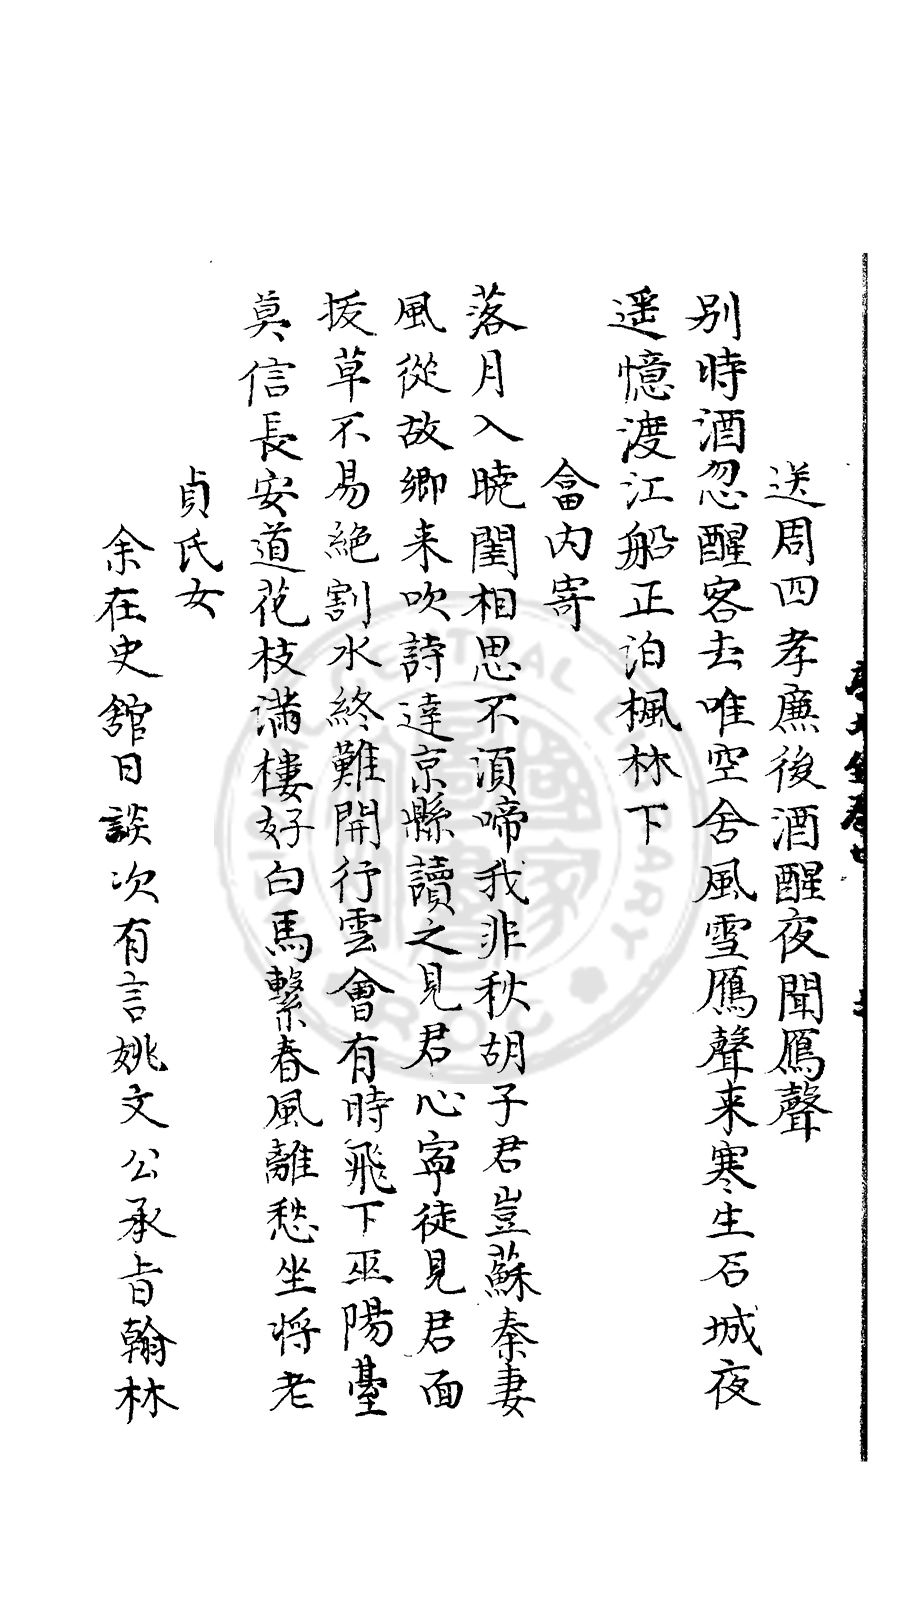 送周四孝廉後酒醒夜聞鴈聲
别時酒忽醒客去唯空舍風雪鴈聲来寒生石城夜
遥憶渡江船正泊楓林下
畣内寄
落月入曉閨相思不湏啼我非秋胡子君豈蘇秦妻
風從故鄉来吹詩達京縣讀之見君心寧徒見君面
拔草不易絶割水終難開行雲會有時飛下巫陽臺
莫信長安道花枝滿樓好白馬繫春風離愁坐将老
貞氏女
余在史舘日談次有言姚文公承㫖翰林